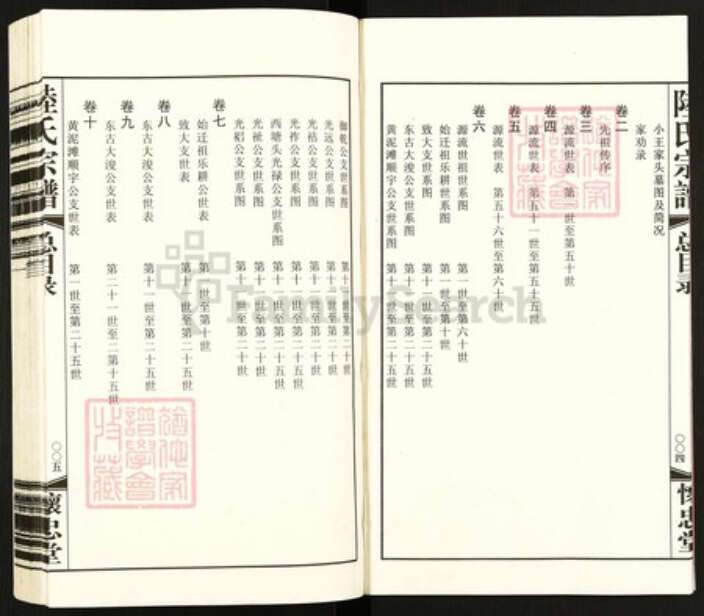 陆氏宗谱
总目录
〇〇四
怀忠堂
小王家头墓图及简况
家劝录
卷二
先祖传序
卷三
源流世表 第一世至第五十世
卷四
源流世表 第五十一世至第五十五世
卷五
源流世表 第五十六世至第六十世
卷六
源流世世系图 第一世至第六十世
始迁祖乐耕世系图 第一世至第十世
致大支世系图 第十一世至第二十世
东古大浚公支世系图 第十一世至第二十五世
黄泥滩顺宇公支世系图 第十一世至第二十五世
御乾公支世系图 第十一世至第二十世
光远公支世系图 第十一世至第二十世
光祜公支世系图 第十一世至第二十世
光祚公支世系图 第十一世至第二十世
西塘头光禄公支世系图 第十一世至第二十世
光祉公支世系图 第十一世至第二十世
光祒公支世系图 第十一世至第二十世
卷七
始迁祖乐耕公世表 第一世至第十世
致大支世表 第十一世至第二十五世
卷八
东古大浚公支世表 第十一世至第二十五世
卷九
东古大浚公支世表 第二十一世至二第十五世
卷十
黄泥滩顺宇公支世表 第一世至第二十五世
陆氏宗谱
总目录
〇〇五
怀忠堂
FamilySearch